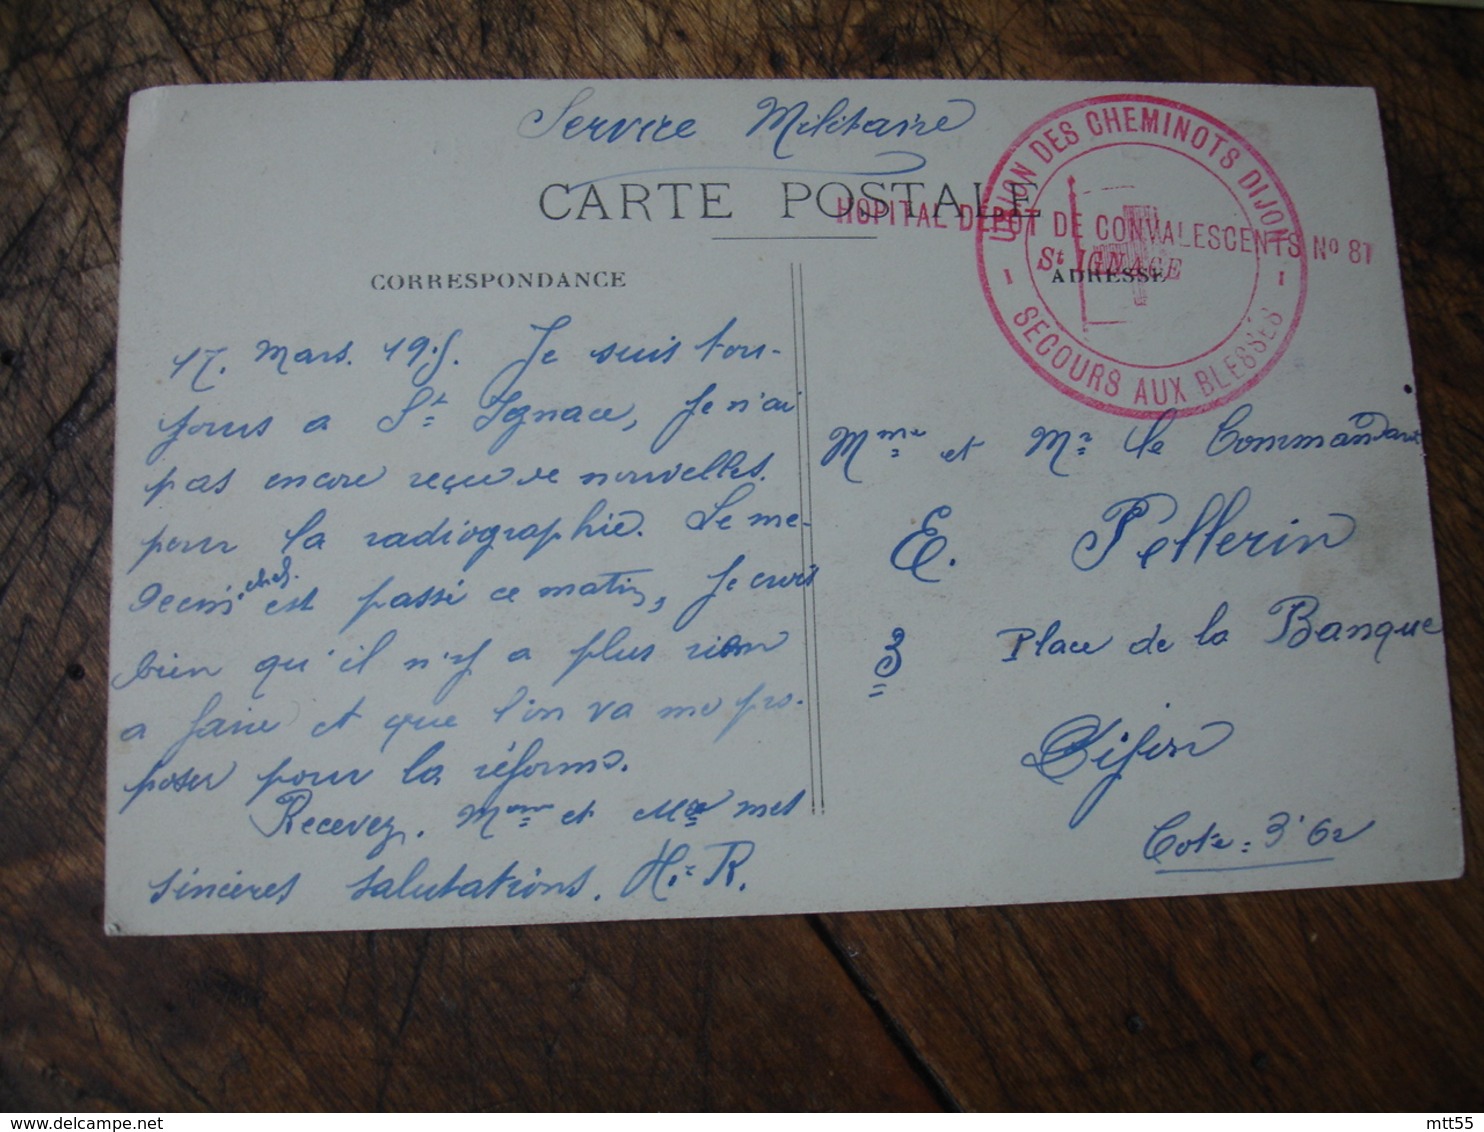 Service Militaire
CARTE POSTALE
UNION DES CHEMINOTS DIJON
HOPITAL DEPOT DE CONVALESCENTS No 81
St IGNACE
SECOURS AUX BLESSÉS
CORRESPONDANCE
17. Mars. 195. Je suis tou-
jours a St Ignace, Je n'ai
pas encore reçue de nouvelles.
pour la radiographie. Le me-
decin chef. est passé ce matin, Je crois
bien qu'il n'y a plus rien
a faire et que l'on va me pro-
poser pour la réforme.
Recevez. Mme et Mr mes
sincères salutations. H. R.
ADRESSE
Mme et Mr le Commandant
E. Pellerin
3 Place de la Banque
Dijon
Cote = 3'62
mtt55